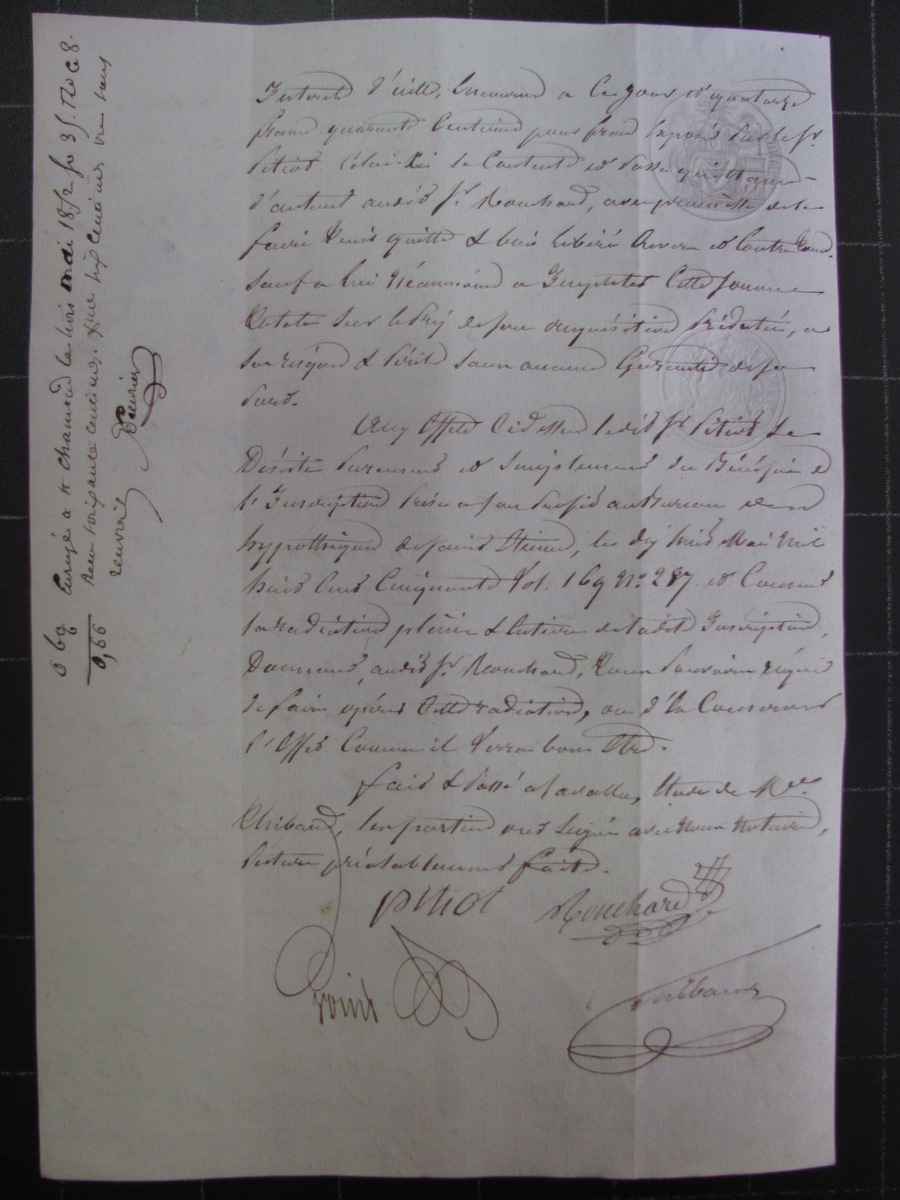 Intérêts d'icelle, encourus à ce jour et quatorze
francs quarante centimes pour frais exposés par le Sr
Pitiot celui-ci se contente et passe quittance
d'autant audit Sr Mouchard, avec promesse de le
faire tenir quitte & bien libéré envers et contre tous.
Sauf à lui néanmoins à imputer cette somme
totale sur le prix de son acquisition prédatée, à
ses risques & périls sans aucune garantie de sa
part.
Aux effets ci dessus ledit Sr Pitiot se
Désiste purement et simplement du bénéfice de
l'Inscription prise à son profit au bureau des
hypothèques de Saint Etienne, le dix huit Mai mil
huit cent cinquante Vol. 169 No 287. et consent
la radiation pleine & entière de ladite Inscription,
Donnant, audit Sr Mouchard, tous pouvoirs requis
de faire opérer cette radiation, ou d'en conserver
l'effet comme il verra bon être.
fait & passé à Lavalla, étude de Me
Thibaud, les parties ont signé avec nous notaires,
lecture préalablement faite.
pitiot Mouchard
Thibaud
Enregé à St Chamond le trois mai 1852 fo 35 Ro C 8.
Reçu soixante centimes. dixe six centimes
0 60
0,66